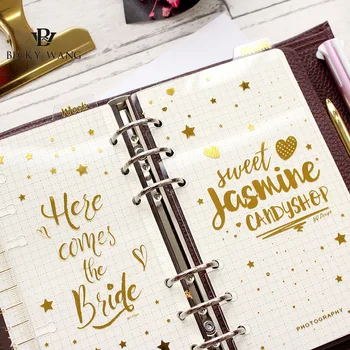 BECKY WANG
Week
Here
comes
the
Bride
sweet
Jasmine
CANDYSHOP
PHOTOGRAPHY